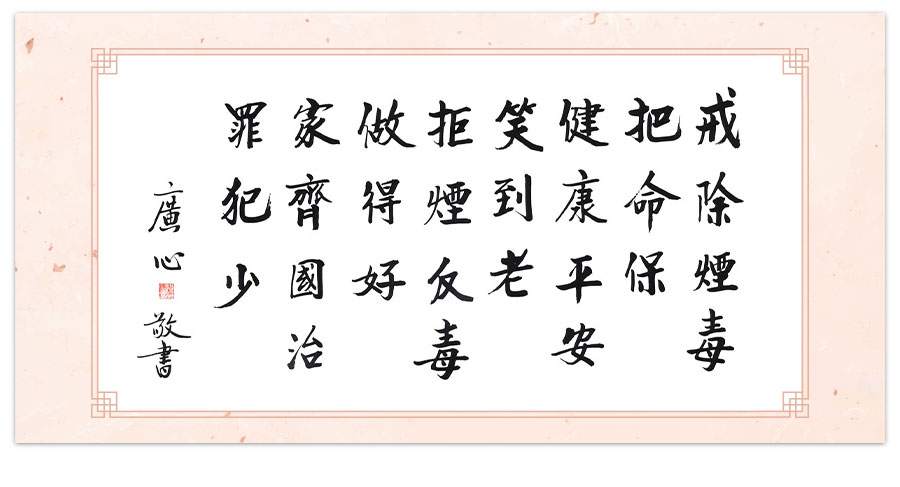 戒除煙毒
把命保
健康平安
笑到老
拒煙反毒
做得好
家齊國治
罪犯少
廣心
敬書